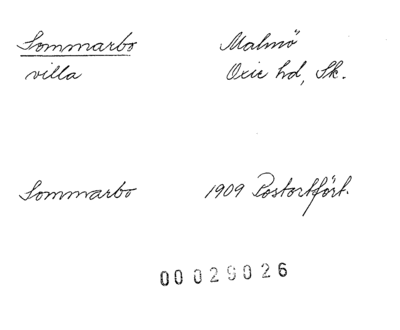 Sommarbo Malmö
villa Oxie hd, Sk.
Sommarbo 1909 Postortfört.
00029026